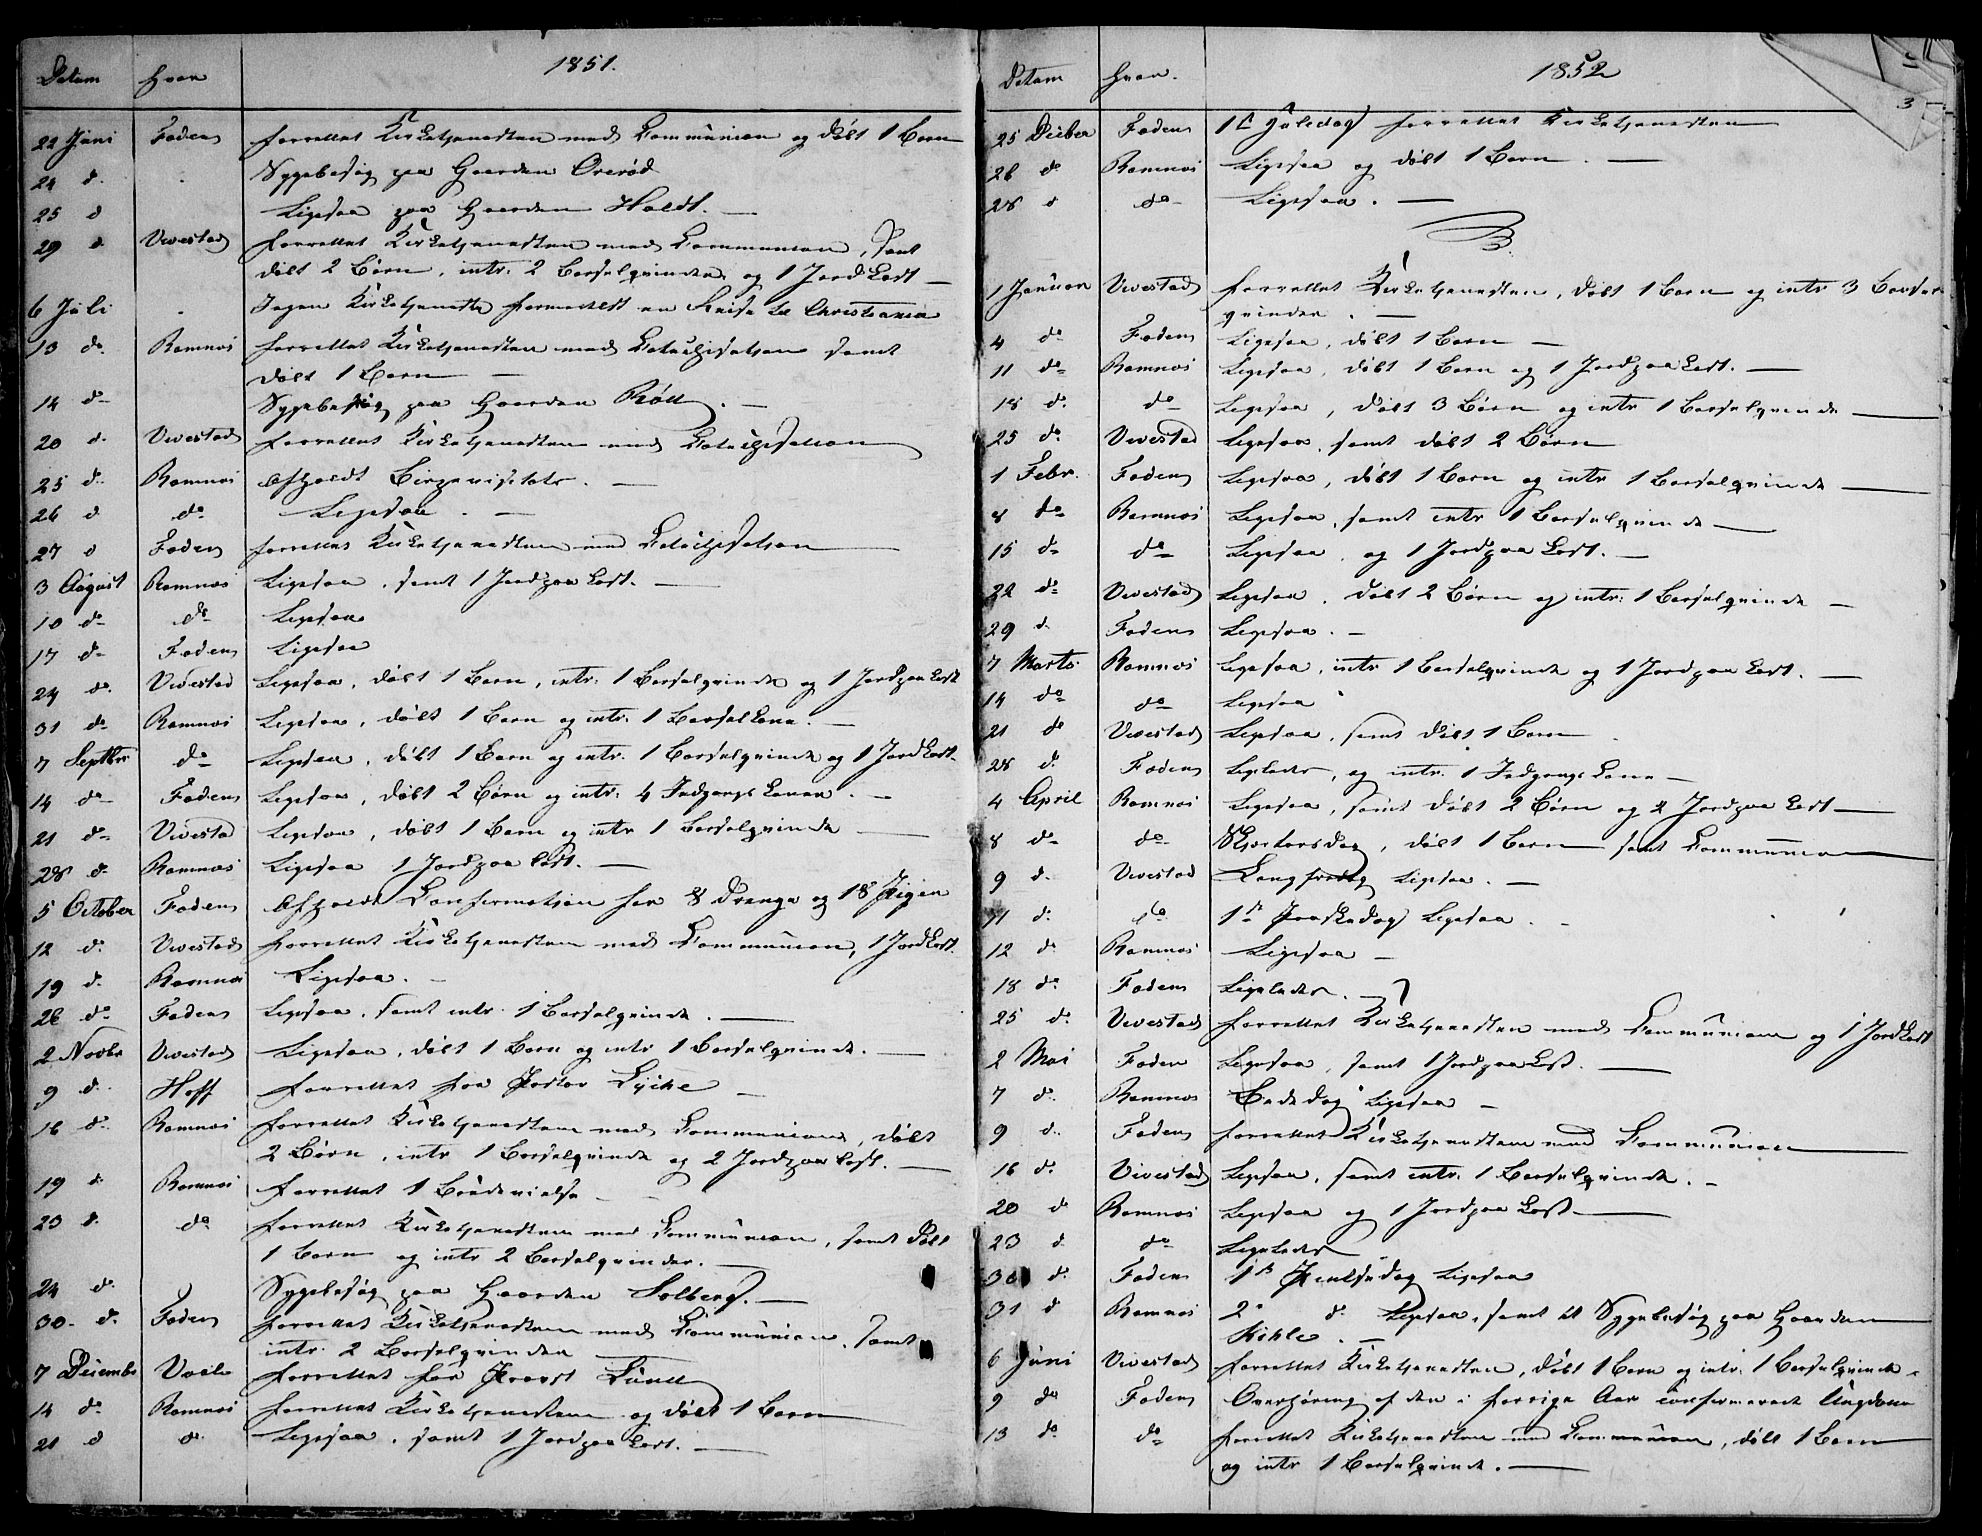 Datum hvor 1851.
22 Juni Fodens forrettet Kirketjenesten med Communion og døbt 1 Barn
24 d. Sygebesøg paa Gaarden Orerød
25 d Ligesaa paa Gaarden Holdt. —
29 d. Vivestad forrettet Kirketjenesten med Communion, samt
døbt 2 Børn, intr: 2 Barselqvinder og 1 JordKast —
6 Juli . Ingen Kirketjeneste formedelst en Reise til Christiania
13 do. Ramnæs forrettet Kirketjenesten med Catechisation samt
døbt 1 Barn —
14 do Sygebesøg paa Gaarden Röll. —
20 d. Vivestad forrettet Kirketjenesten med Catechisation
25 d. Ramnæs Afholdt Bispevisitats. —
26 d do Ligesaa. —
27 d Fodens forrettet Kirketjenesten med Catechisation
3 August Ramnæs Ligesaa, samt 1 JordpaaKast. —
10 do do Ligesaa
17 d. Fodens Ligesaa
24 do. Vivestad Ligesaa, døbt 1 Barn, intr: 1 Barselqvinde og 1 JordpaaKast
31 do Ramnæs Ligesaa, døbt 1 Barn og intr: 1 BarselKone. —
7 Septbr do Ligesaa, døbt 1 Barn og intr: 1 Barselqvinde og 1 JordKast
14 do Fodens Ligesaa, døbt 2 Børn og intr: 4 IndgangsKoner. —
21 do Vivestad Ligesaa, døbt 1 Barn og intr 1 Barselqvinde —
28 d. Ramnæs Ligesaa 1 Jordpaakast. —
5 October Fodens Afholdt Confirmation for 8 Drenge og 18 Piger
12 d. Vivestad forrettet Kirketjenesten med Communion, 1 JordKast.
19 d. Ramnæs Ligesaa. —
26 do Fodens Ligesaa, samt intr 1 Barselqvinde. —
2 Novbr Vivestad Ligesaa, døbt 1 Barn og intr 1 Barselqvinde. —
9 d. Hoff forrettet for Pastor Lÿche —
16 d. Ramnæs forrettet Kirketjenesten med Communion, døbt
2 Børn, intr 1 Barselqvinde og 2 Jordpaakast. —
19 d Ramnæs forrettet 1 Brudevielse —
23 d. do forrettet Kirketjenesten med Communion, samt døbt
1 Barn og intr 2 Barselqvinder. —
24 do. Sygebesøg paa Gaarden Solberg. —
30 d. Fodens forrettet Kirketjenesten med Communion, samt
intr: 2 Barselqvinder
7 Decembr Vaale forrettet for Provst Lund
14 do. Ramnæs forrettet Kirketjenesten og døbt 1 Barn
21 d do. Ligesaa, samt 1 JordpaaKast. —
Datum hvor. 1852
3
25 Decber Fodens 1ste Juledag forrettet Kirketjenesten
26 d Ramnæs Ligesaa og døbt 1 Barn. —
28 d do Ligesaa. —
1 Januar Vivestad forrettet Kirketjenesten, døbt 1 Barn og intr 3 Barsel
qvinder. —
4 do Fodens Ligesaa, døbt 1 Barn —
11 do Ramnæs Ligesaa, døbt 1 Barn og 1 JordpaaKast. —
18 d. do Ligesaa, døbt 3 Børn og intr 1 Barselqvinde —
25 do. Vivestad Ligesaa, samt døbt 2 Børn
1 Febr. Fodens Ligesaa, døbt 1 Barn og intr 1 Barselqvinde —
8 do Ramnæs Ligesaa, samt intr 1 Barselqvinde —
15 d. do Ligesaa, og 1 JordpaaKast. —
22 do Vivestad Ligesaa, døbt 2 Børn og intr: 1 Barselqvinde —
29 d. Fodens Ligesaa. —
7 Marts Ramnæs Ligesaa, intr 1 Barselqvinde og 1 JordpaaKast. —
14 do do Ligesaa
21 do Vivestad Ligesaa, samt døbt 1 Barn
28 d. Fodens Ligeledes, og intr. 1 IndgangsKone —
4 April Ramnæs Ligesaa, samt døbt 2 Børn og 2 JordpaaKast —
8 do do Skjertorsdag, døbt 1 Barn samt Communion
9 d. Vivestad Langfredag Ligesaa. —
11 d. do 1ste Paaskedag Ligesaa. —
12 do Ramnæs Ligesaa —
18 do. Fodens Ligeledes. —
25 do. Vivestad forrettet Kirketjenesten med Communion og 1 JordKast
2 Mai Foden Ligesaa, samt 1 JordpaaKast. —
7 do. Ramnæs Bededag Ligesaa —
9 d. Fodens forrettet Kirketjenesten med Communion
16 do. Vivestad Ligesaa, samt intr. 1 Barselqvinde. —
20 do Ramnæs Ligesaa og 1 JordpaaKast —
23 d do Ligeledes
30 d. Fodens 1ste Pintsedag Ligesaa
31 d Ramnæs 2. d. Ligesaa, samt et Sygebesøg paa Gaarden
Kihle. —
6 Juni Vivestad forrettet Kirketjenesten, døbt 1 Barn og intr. 1 Barselqvinde.
9 do Fodens Overhøring af den i forrige Aar confirmerede Ungdom
13 do do forrettet Kirketjenesten med Communion, døbt 1 Barn
og intr 1 Barselqvinde. —